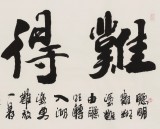 難得
聰明
難糊
塗難
由聰
明轉
入糊
塗更
難放
一着